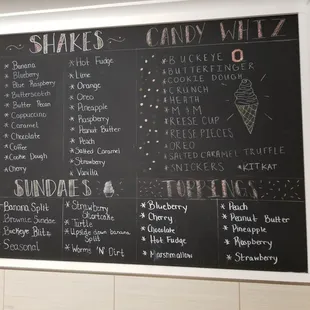 SHAKES
* Banana
* Blueberry
* Blue Raspberry
* Butterscotch
* Butter Pecan
* Cappuccino
* Caramel
* Chocolate
* Coffee
* Cookie Dough
* Cherry
* Hot Fudge
* Lime
* Orange
* Oreo
* Pineapple
* Raspberry
* Peanut Butter
* Peach
* Salted Caramel
* Strawberry
* Vanilla
CANDY WHIZ
* BUCKEYE
* BUTTERFINGER
* COOKIE DOUGH
* CRUNCH
* HEATH
* M&M
* REESE CUP
* REESE PIECES
* OREO
* SALTED CARAMEL TRUFFLE
* SNICKERS * KITKAT
SUNDAES
Banana Split
Brownie Sundae
Buckeye Blitz
Seasonal
* Strawberry
Shortcake
* Turtle
* Upside down banana
Split
* Worms 'N' Dirt
TOPPINGS
* Blueberry
* Cherry
* Chocolate
* Hot Fudge
* Marshmallow
* Peach
* Peanut Butter
* Pineapple
* Raspberry
* Strawberry